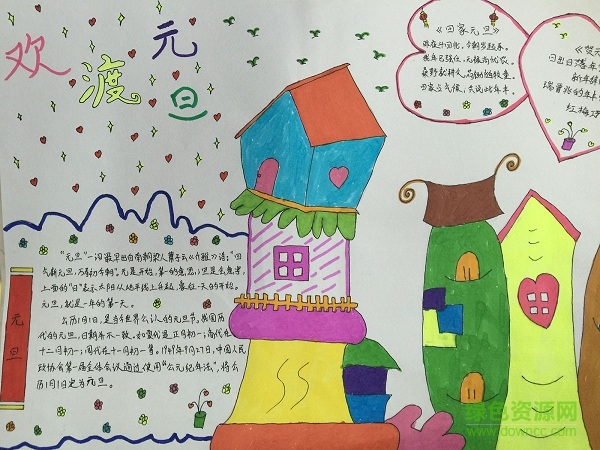 欢渡元旦
《田家元旦》
昨夜斗回北,今朝岁起东。
我年已强仕,无禄尚忧农。
桑野就耕人,荷锄随牧童。
田家占气候,共说此年丰。
《
日出日落在
新年
瑞
红梅
元旦
"元旦"一词最早出自南朝梁人萧子云《介雅》诗:"四
气新元旦,万寿初今朝"。元是开始,第一的意思;旦是会意字,
上面的"日"表示太阳从地平线上升起,象征一天的开始。
元旦,就是一年的第一天。
公历1月1日,是当今世界公认的元旦节。我国历
代的元旦,日期并不一致。如夏代是正月初一;商代在
十二月初一;周代在十一月初一等。1949年9月27日,中国人民
政协会第一届全体会议通过使用"公元纪年法",将公
历1月1日定为元旦。
绿色资源网
www.downcc.com